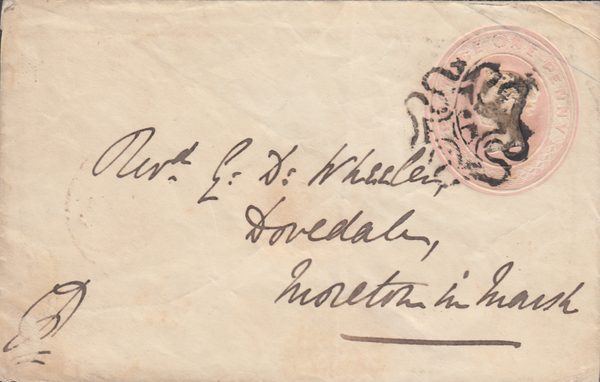 POSTAGE ONE PENNY
Revd. G: D: Wheeler,
Dovedale,
Moreton in Marsh